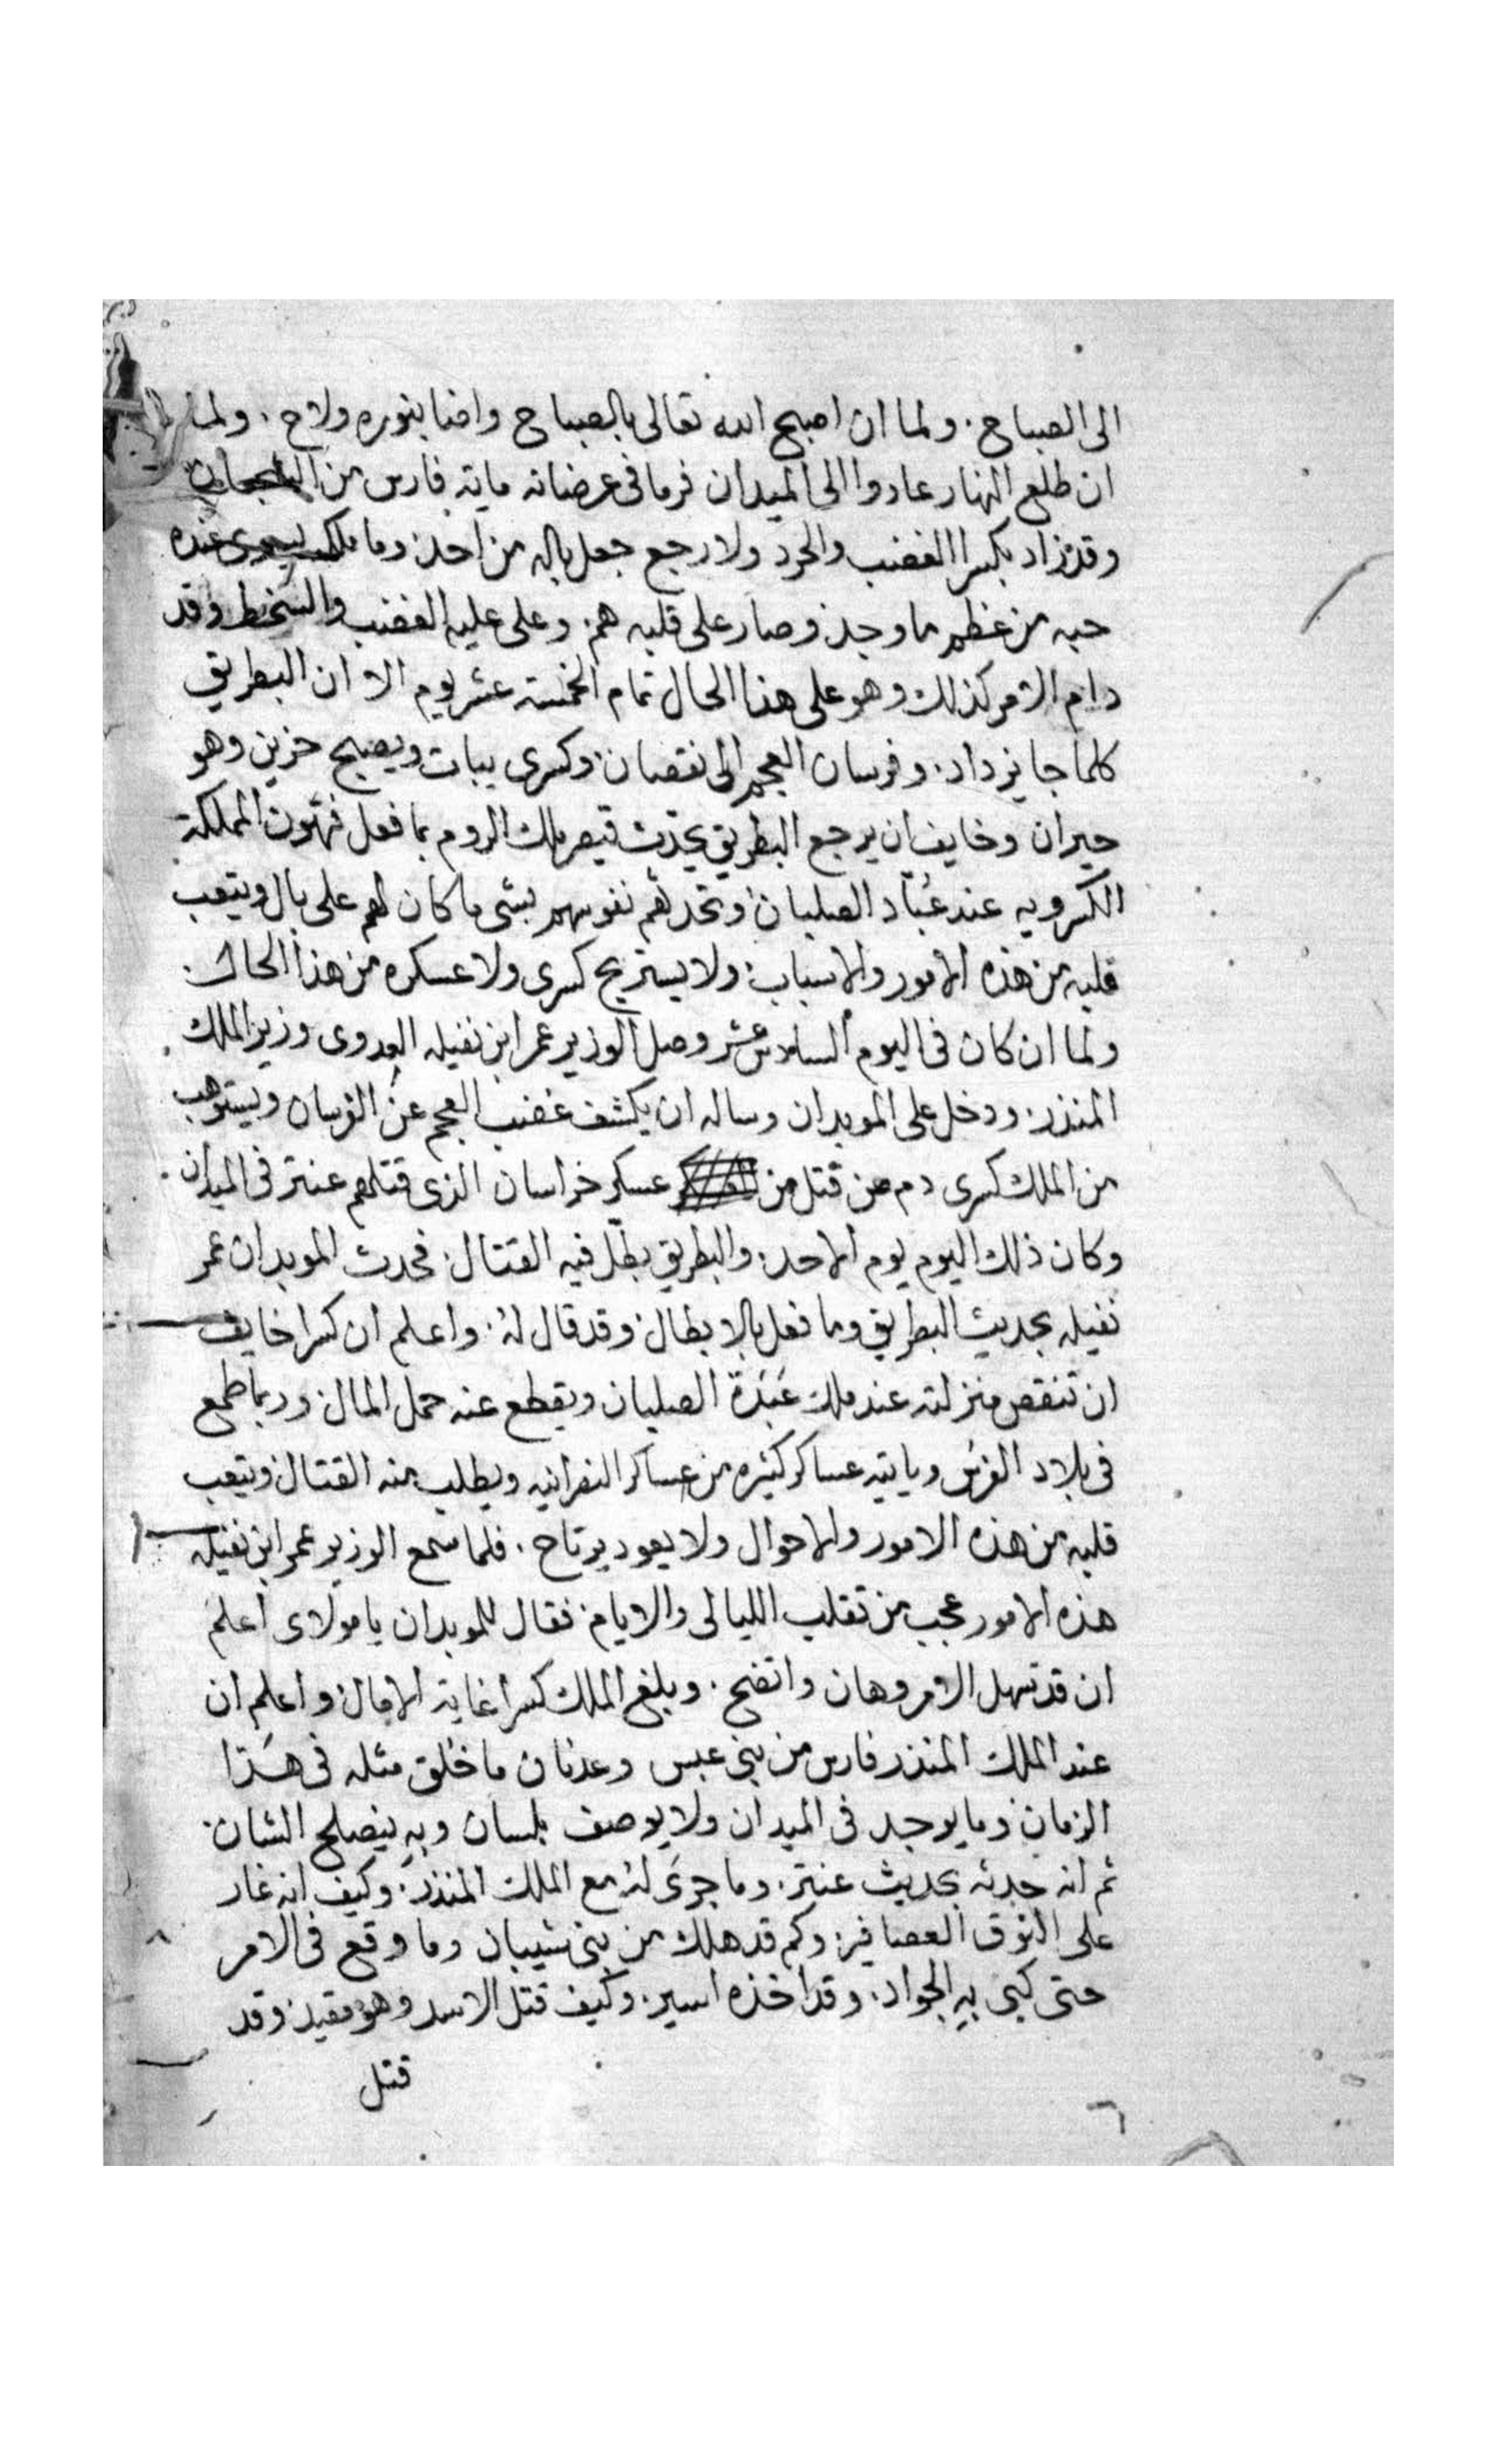 الى الصباح . ولما ان اصبح الله تعالى بالصباح واضا بنوره ولاح . ولما
ان طلع النهار عادوا الى الميدان فرما فى عرضاته ماية فارس من
وقد زاد بكسرا الغضب والحرد ولا رجع جعل باله من احد . وما ملك عنده
حبه من عظم ما وجد . وصار على قلبه هم . وعلى عليه الغضب والسخط وقد
دام الامر كذلك وهو على هذا الحال تمام الخمسة عشر يوم الا ان البطريق
كلما جا يزداد . وفرسان العجم الى نقصان . وكسرى يبات ويصبح حزين وهو
حيران وخايف ان يرجع البطريق يحدث قيصر ملك الروم بما فعل فتهون المملكة
الكسرويه عند عُبّاد الصلبان وتحدثهم نفوسهم بشى ما كان لهم على بال ويتعب
قلبه من هذه الامور والاسباب . ولا يستريح كسرى ولا عسكره من هذا الحال .
ولما ان كان فى اليوم السادس عشر وصل الوزير عمر ابن نفيله العدوى وزير الملك
المنذر . ودخل على الموبدان وساله ان يكشف غضب العجم عن الفرسان ويستوهب
من الملك كسرى دم من قتل من عسكر خراسان الذى قتلهم عنتر فى الميدان .
وكان ذلك اليوم يوم الاحد . والبطريق بطّل فيه القتال . فحدث الموبدان عمر
نفيله بحديث البطريق وما فعل بالابطال . وقد قال له . واعلم ان كسرا خايف
ان تنقص منزلته عند ملك عَبَدَة الصلبان ويقطع عنه حمل المال . وربما طمع
فى بلاد الفرس وياتيه عساكر كثيره من عساكر النصرانيه ويطلب منه القتال ويتعب
قلبه من هذه الامور والاحوال ولا يعود يرتاح . فلما سمع الوزير عمر ابن نفيله
هذه الامور عجب من تقلب الليالى والايام . فقال للموبدان يا مولاى اعلم
ان قد تسهل الامر وهان واتضح . وبلغ الملك كسرا غاية الامال . واعلم ان
عند الملك المنذر فارس من بنى عبس وعدنان ما خلق مثله فى هذا
الزمان . وما يوجد فى الميدان ولا يوصف بلسان وبه ينصلح الشان .
ثم انه حدثه بحديث عنتر . وما جرى له مع الملك المنذر . وكيف انه غار
على النوق العصافير . وكم قد هلك من بنى شيبان وما وقع فى الامر
حتى كبى به الجواد . وقد اخذه اسير . وكيف قتل الاسد وهو مقيد . وقد
قتل